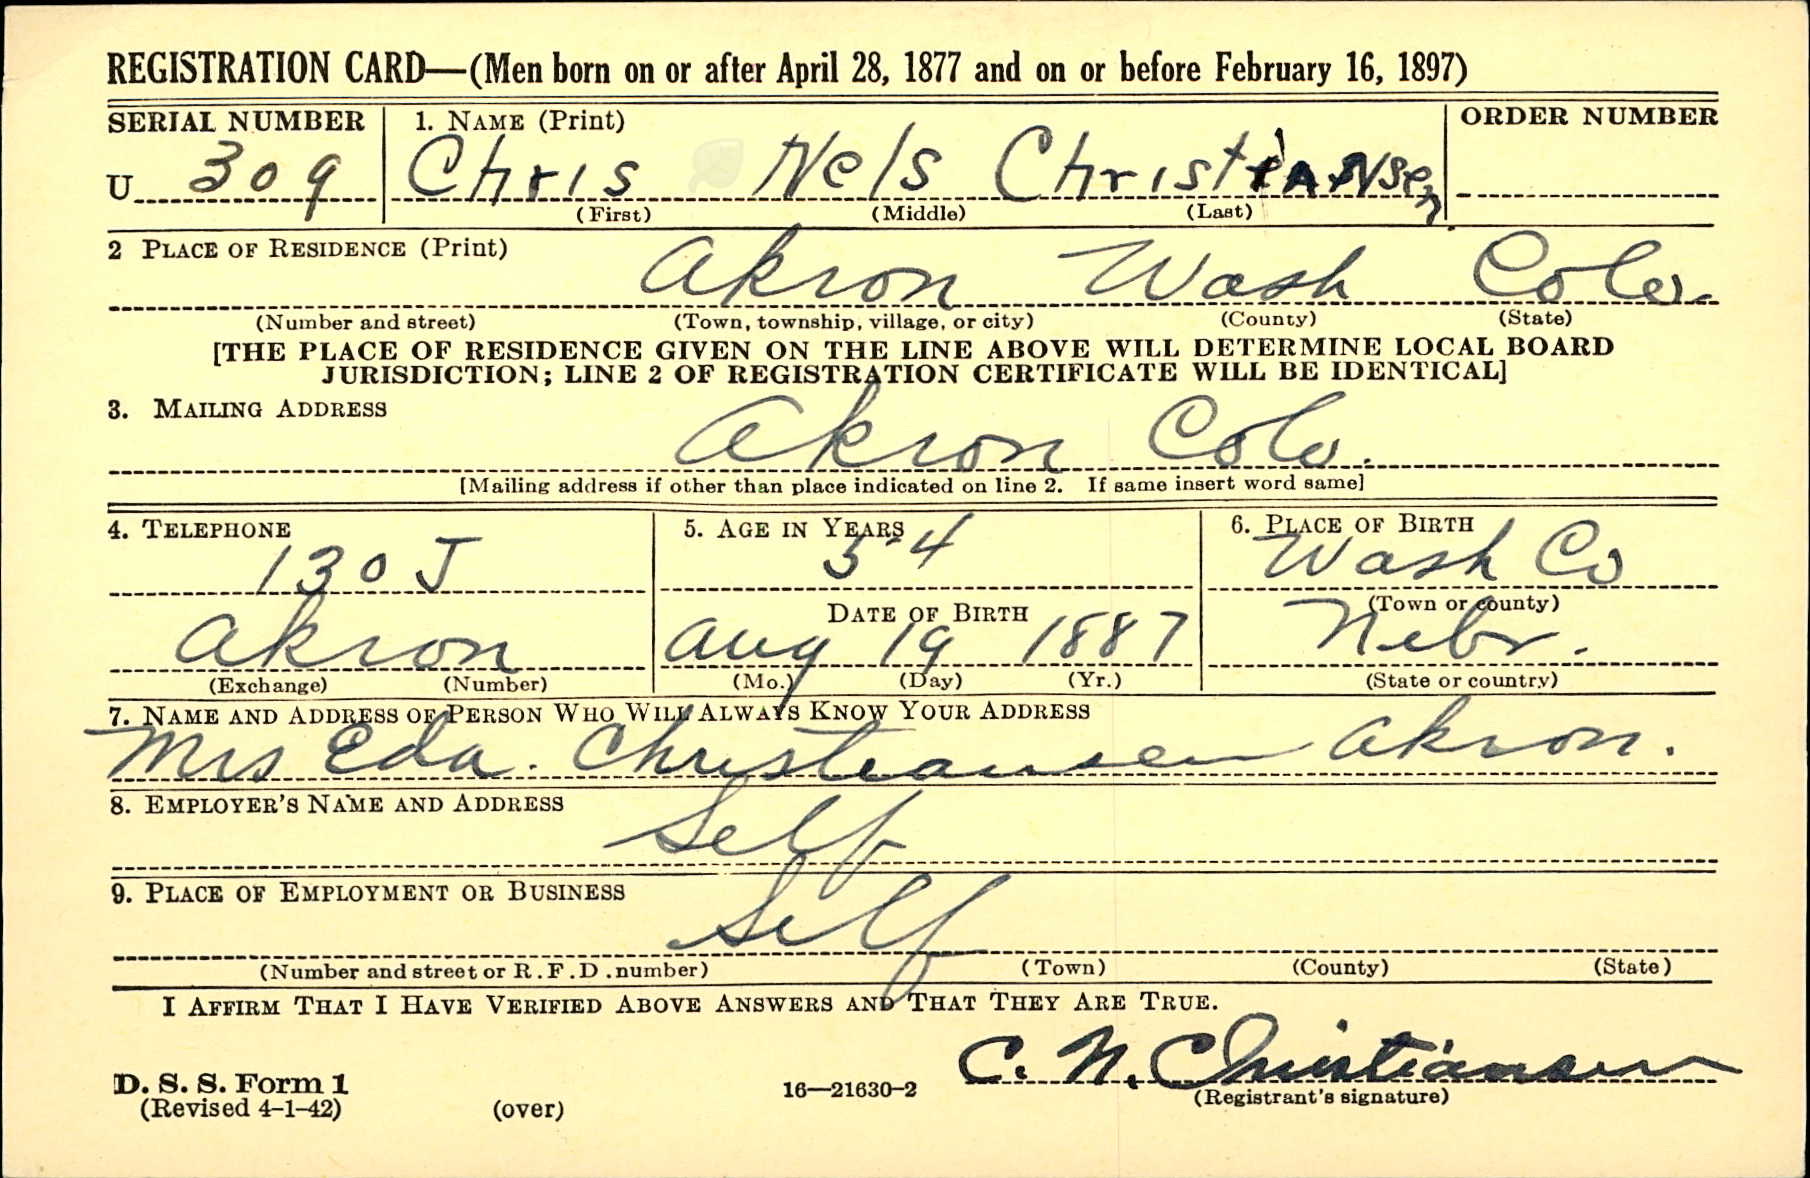 REGISTRATION CARD—(Men born on or after April 28, 1877 and on or before February 16, 1897)
SERIAL NUMBER
1. NAME (Print)
ORDER NUMBER
U 309
Chris Nels Christiansen
(First) (Middle) (Last)
2 PLACE OF RESIDENCE (Print)
Akron Wash Colo.
(Number and street) (Town, township, village, or city) (County) (State)
[THE PLACE OF RESIDENCE GIVEN ON THE LINE ABOVE WILL DETERMINE LOCAL BOARD
JURISDICTION; LINE 2 OF REGISTRATION CERTIFICATE WILL BE IDENTICAL]
3. MAILING ADDRESS
Akron Colo.
[Mailing address if other than place indicated on line 2. If same insert word same]
4. TELEPHONE
130 J
Akron
(Exchange) (Number)
5. AGE IN YEARS
54
DATE OF BIRTH
Aug 19 1887
(Mo.) (Day) (Yr.)
6. PLACE OF BIRTH
Wash Co
(Town or county)
Nebr.
(State or country)
7. NAME AND ADDRESS OF PERSON WHO WILL ALWAYS KNOW YOUR ADDRESS
Mrs Eda. Christiansen Akron.
8. EMPLOYER'S NAME AND ADDRESS
Self
9. PLACE OF EMPLOYMENT OR BUSINESS
Self
(Number and street or R.F.D. number) (Town) (County) (State)
I AFFIRM THAT I HAVE VERIFIED ABOVE ANSWERS AND THAT THEY ARE TRUE.
C. N. Christiansen
(Registrant's signature)
D. S. S. Form 1
(Revised 4-1-42) (over) 16—21630-2